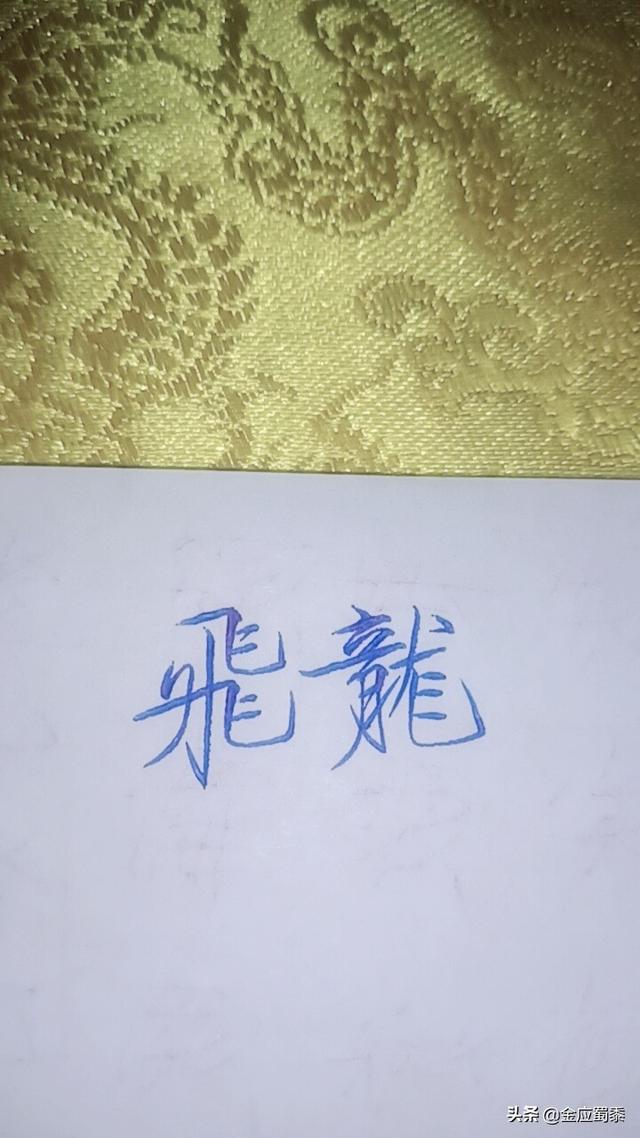 飛龍
头条 @金应蜀黍